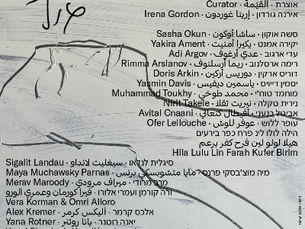 אוצרת · القيّمة · Curator
אירנה גורדון · إرينا غوردون · Irena Gordon
סשה אוקון · ساشا أوكون · Sasha Okun
יקירה אמנט · يكيرا أمنيت · Yakira Ament
עדי ארגוב · عدي أرغوف · Adi Argov
רימה ארסלנוב · ريما أرسلنوف · Rimma Arslanov
דורית ארקין · دوريس أركين · Doris Arkin
יסמין דייויס · ياسمين ديفيس · Yasmin Davis
מוחמד טוח'י · محمد طوخي · Muhammad Toukhy
נירית טקלה · نيريت تقلا · Nirit Takele
אביטל כנעני · أفيطال كنعاني · Avital Cnaani
עופר ללוש · عوفر للوش · Ofer Lellouche
הילה לולו לין פרח כפר בירעים
هيلا لولو لين فرح كفر برعم
Hila Lulu Lin Farah Kufer Birim
סיגלית לנדאו · سيغليت لانداو · Sigalit Landau
מיה מוצ'בסקי פרנס · مايا متشويسكي برنس · Maya Muchawsky Parnas
מרב מרודי · ميراف مرودي · Merav Maroody
ורה קורמן ועמרי אלורו
Vera Korman & Omri Alloro
אלכס קרמר · أليكس كرمر · Alex Kremer
יאנה רוטנר · يانا روتنر · Yana Rotner